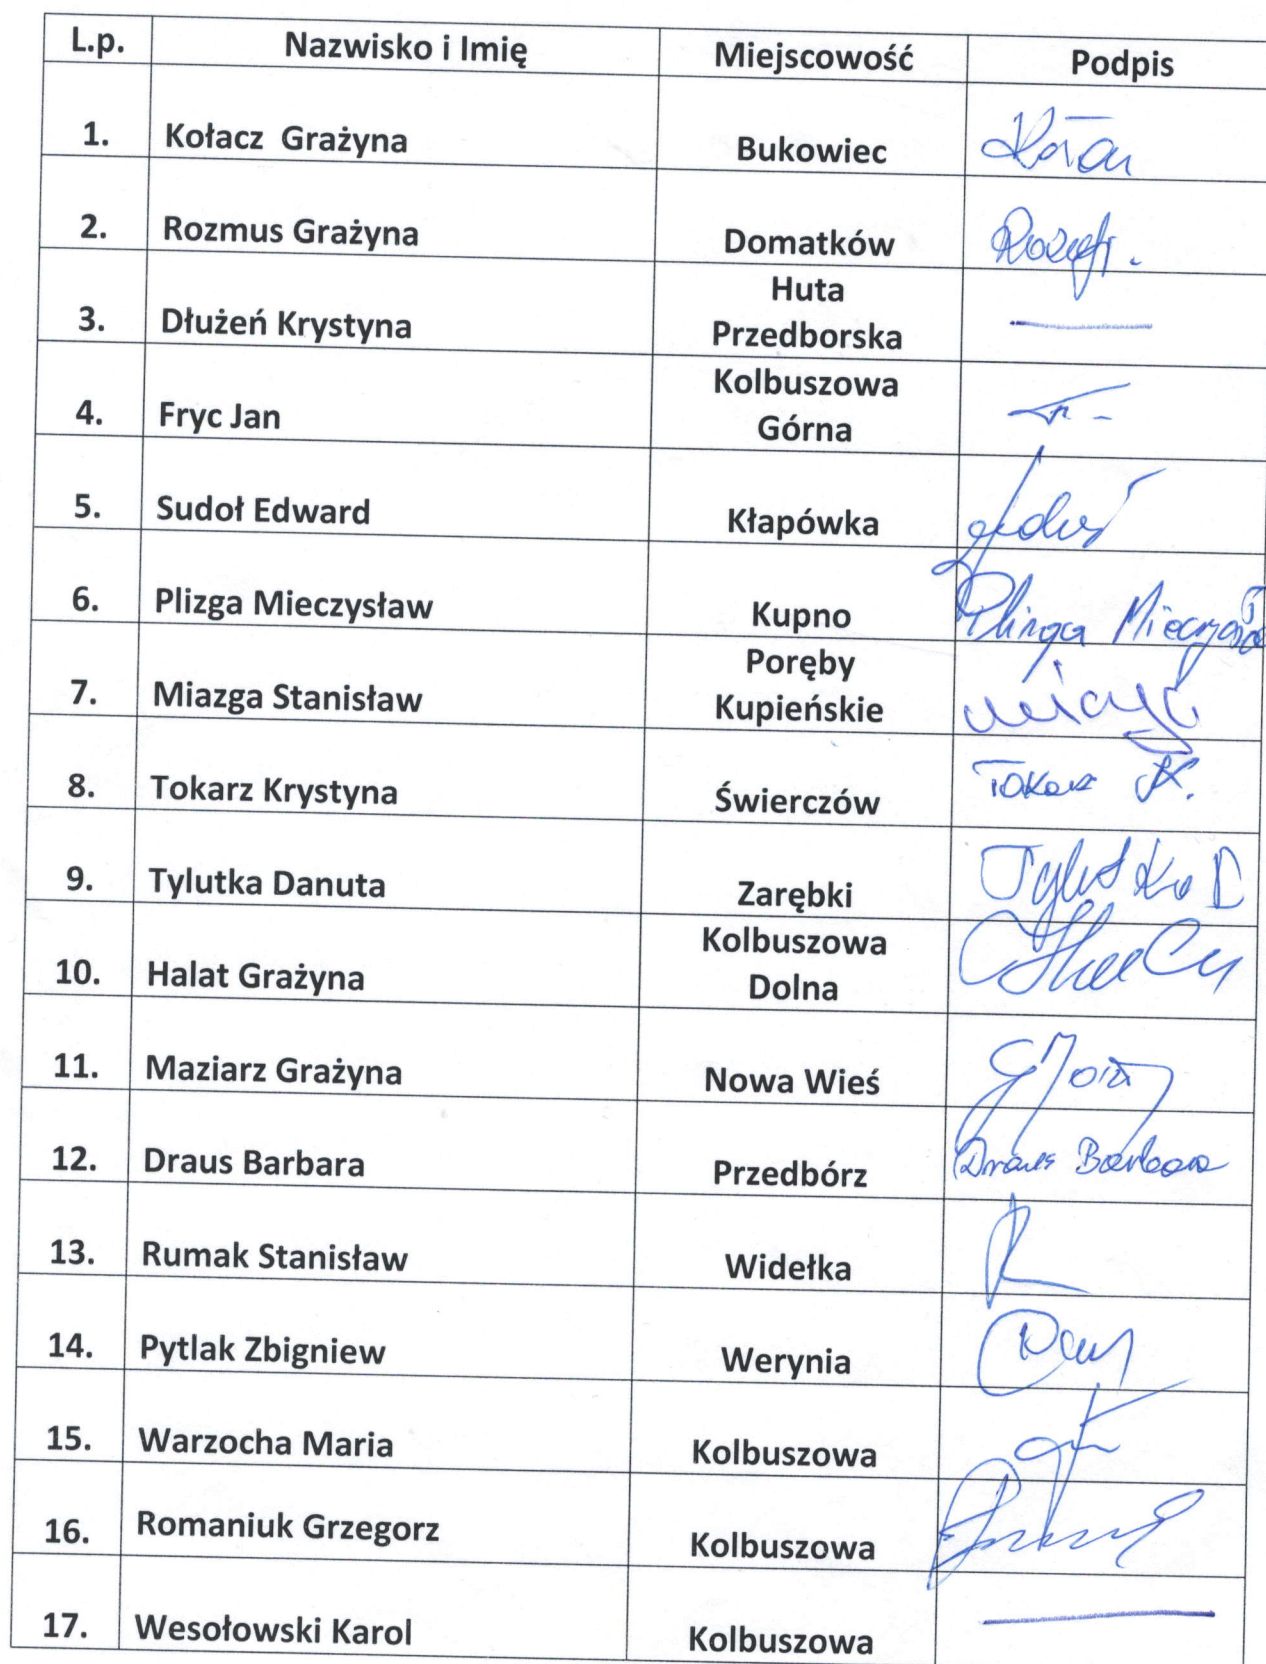 L.p. Nazwisko i Imię Miejscowość Podpis
1. Kołacz Grażyna Bukowiec
2. Rozmus Grażyna Domatków
3. Dłużeń Krystyna Huta
Przedborska
4. Fryc Jan Kolbuszowa
Górna
5. Sudoł Edward Kłapówka
6. Plizga Mieczysław Kupno
7. Miazga Stanisław Poręby
Kupieńskie
8. Tokarz Krystyna Świerczów Tokarz K.
9. Tylutka Danuta Zarębki Tylutka D
10. Halat Grażyna Kolbuszowa
Dolna
11. Maziarz Grażyna Nowa Wieś
12. Draus Barbara Przedbórz Draus Barbara
13. Rumak Stanisław Widełka
14. Pytlak Zbigniew Werynia
15. Warzocha Maria Kolbuszowa
16. Romaniuk Grzegorz Kolbuszowa
17. Wesołowski Karol Kolbuszowa